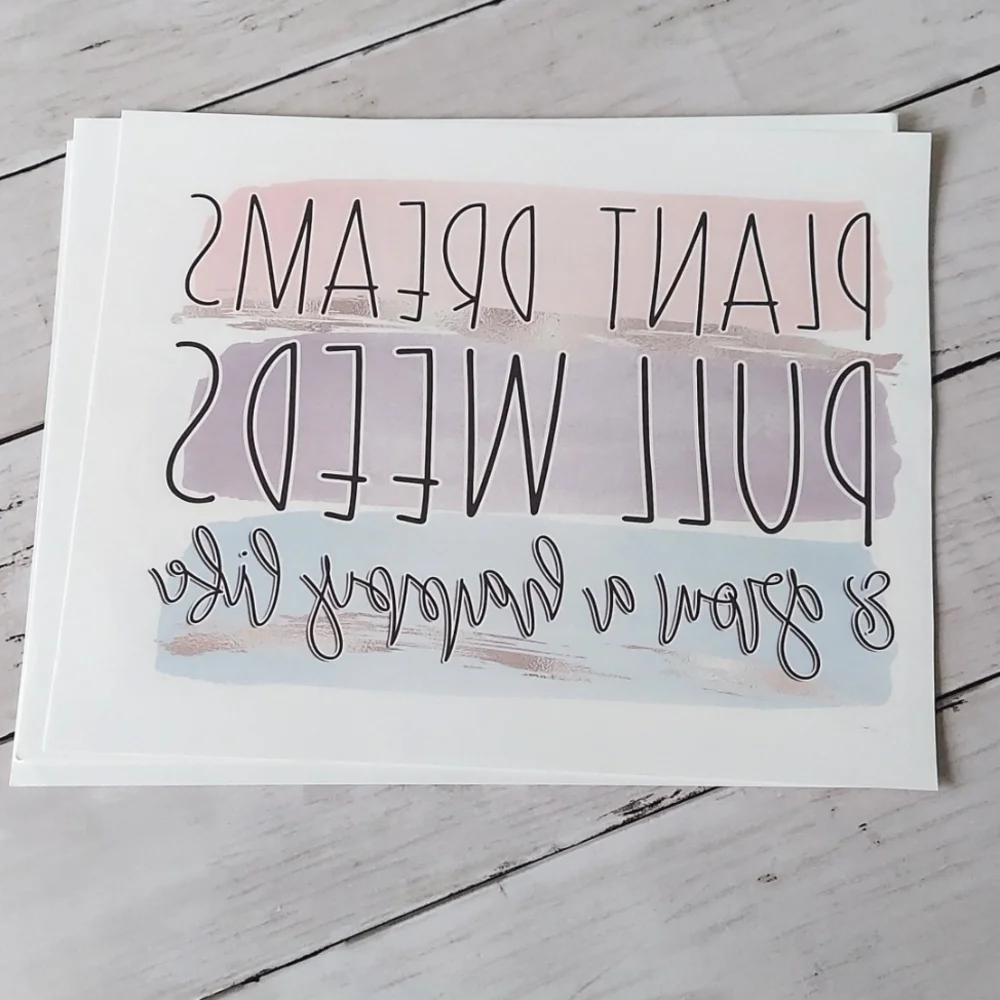 PLANT DREAMS
PULL WEEDS
& grow a happy